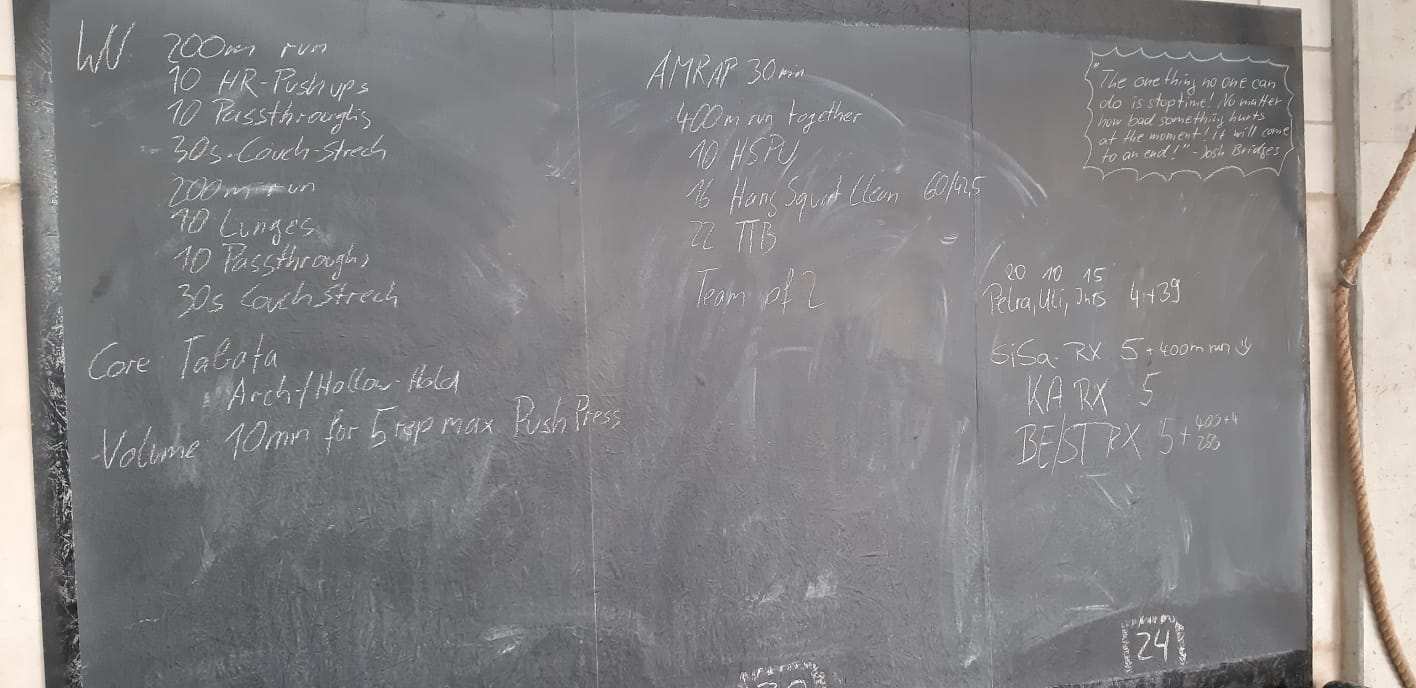 WU 200m run
10 HR-Pushups
10 Passthroughs
30s Couch-Strech
200m run
10 Lunges
10 Passthroughs
30s Couch Strech
Core Tabata
Arch-/Hollow-Hold
Volume 10min for 5 rep max Push Press
AMRAP 30min
400m run together
10 HSPU
16 Hang Squat Clean 60/42,5
22 TTB
Team of 2
"The one thing no one can
do is stop time! No matter
how bad something hurts
at the moment! it will come
to an end!" - Josh Bridges
20 10 15
Petra, Uli, 4+39
SiSa RX 5+400m run
KA RX 5
BE/ST RX 5+
24